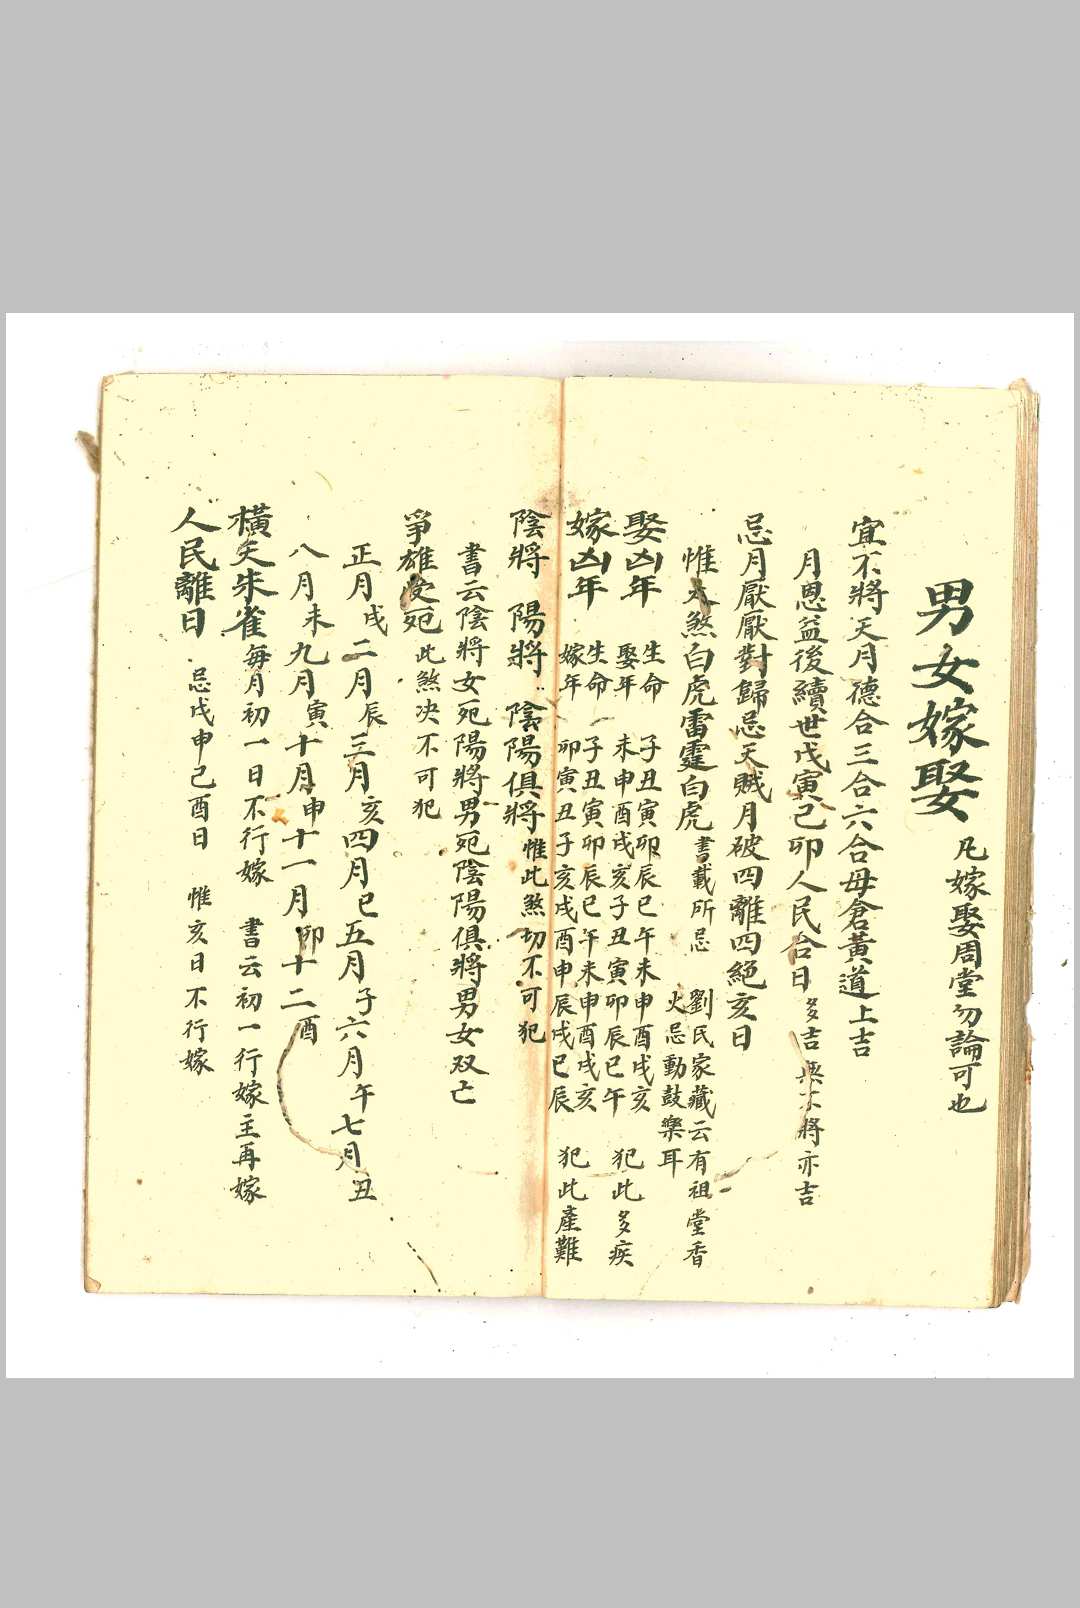 男女嫁娶 凡嫁娶周堂勿論可也
宜不將天月德合三合六合母倉黃道上吉
月恩益後續世戊寅己卯人民合日多吉無不將亦吉
忌月厭厭對歸忌天賊月破四離四絕亥日
惟天煞白虎雷霆白虎書載所忌 劉氏家藏云有祖堂香
火忌動鼓樂耳
娶凶年 生命 子丑寅卯辰巳午未申酉戌亥
娶年 未申酉戌亥子丑寅卯辰巳午 犯此多疾
嫁凶年 生命 子丑寅卯辰巳午未申酉戌亥
嫁年 卯寅丑子亥戌酉申辰戌巳辰 犯此產難
陰將 陽將 陰陽俱將惟此煞切不可犯
書云陰將女死陽將男死陰陽俱將男女双亡
爭雄受死此煞决不可犯
正月戌二月辰三月亥四月巳五月子六月午七月丑
八月未九月寅十月申十一月卯十二酉
橫天朱雀每月初一日不行嫁 書云初一行嫁主再嫁
人民離日 忌戊申己酉日 惟亥日不行嫁